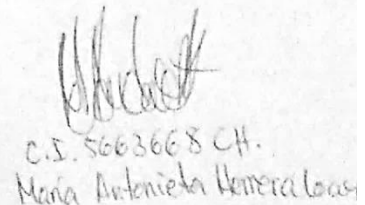 C.I. 5663668 CH.
María Antonieta Herrera